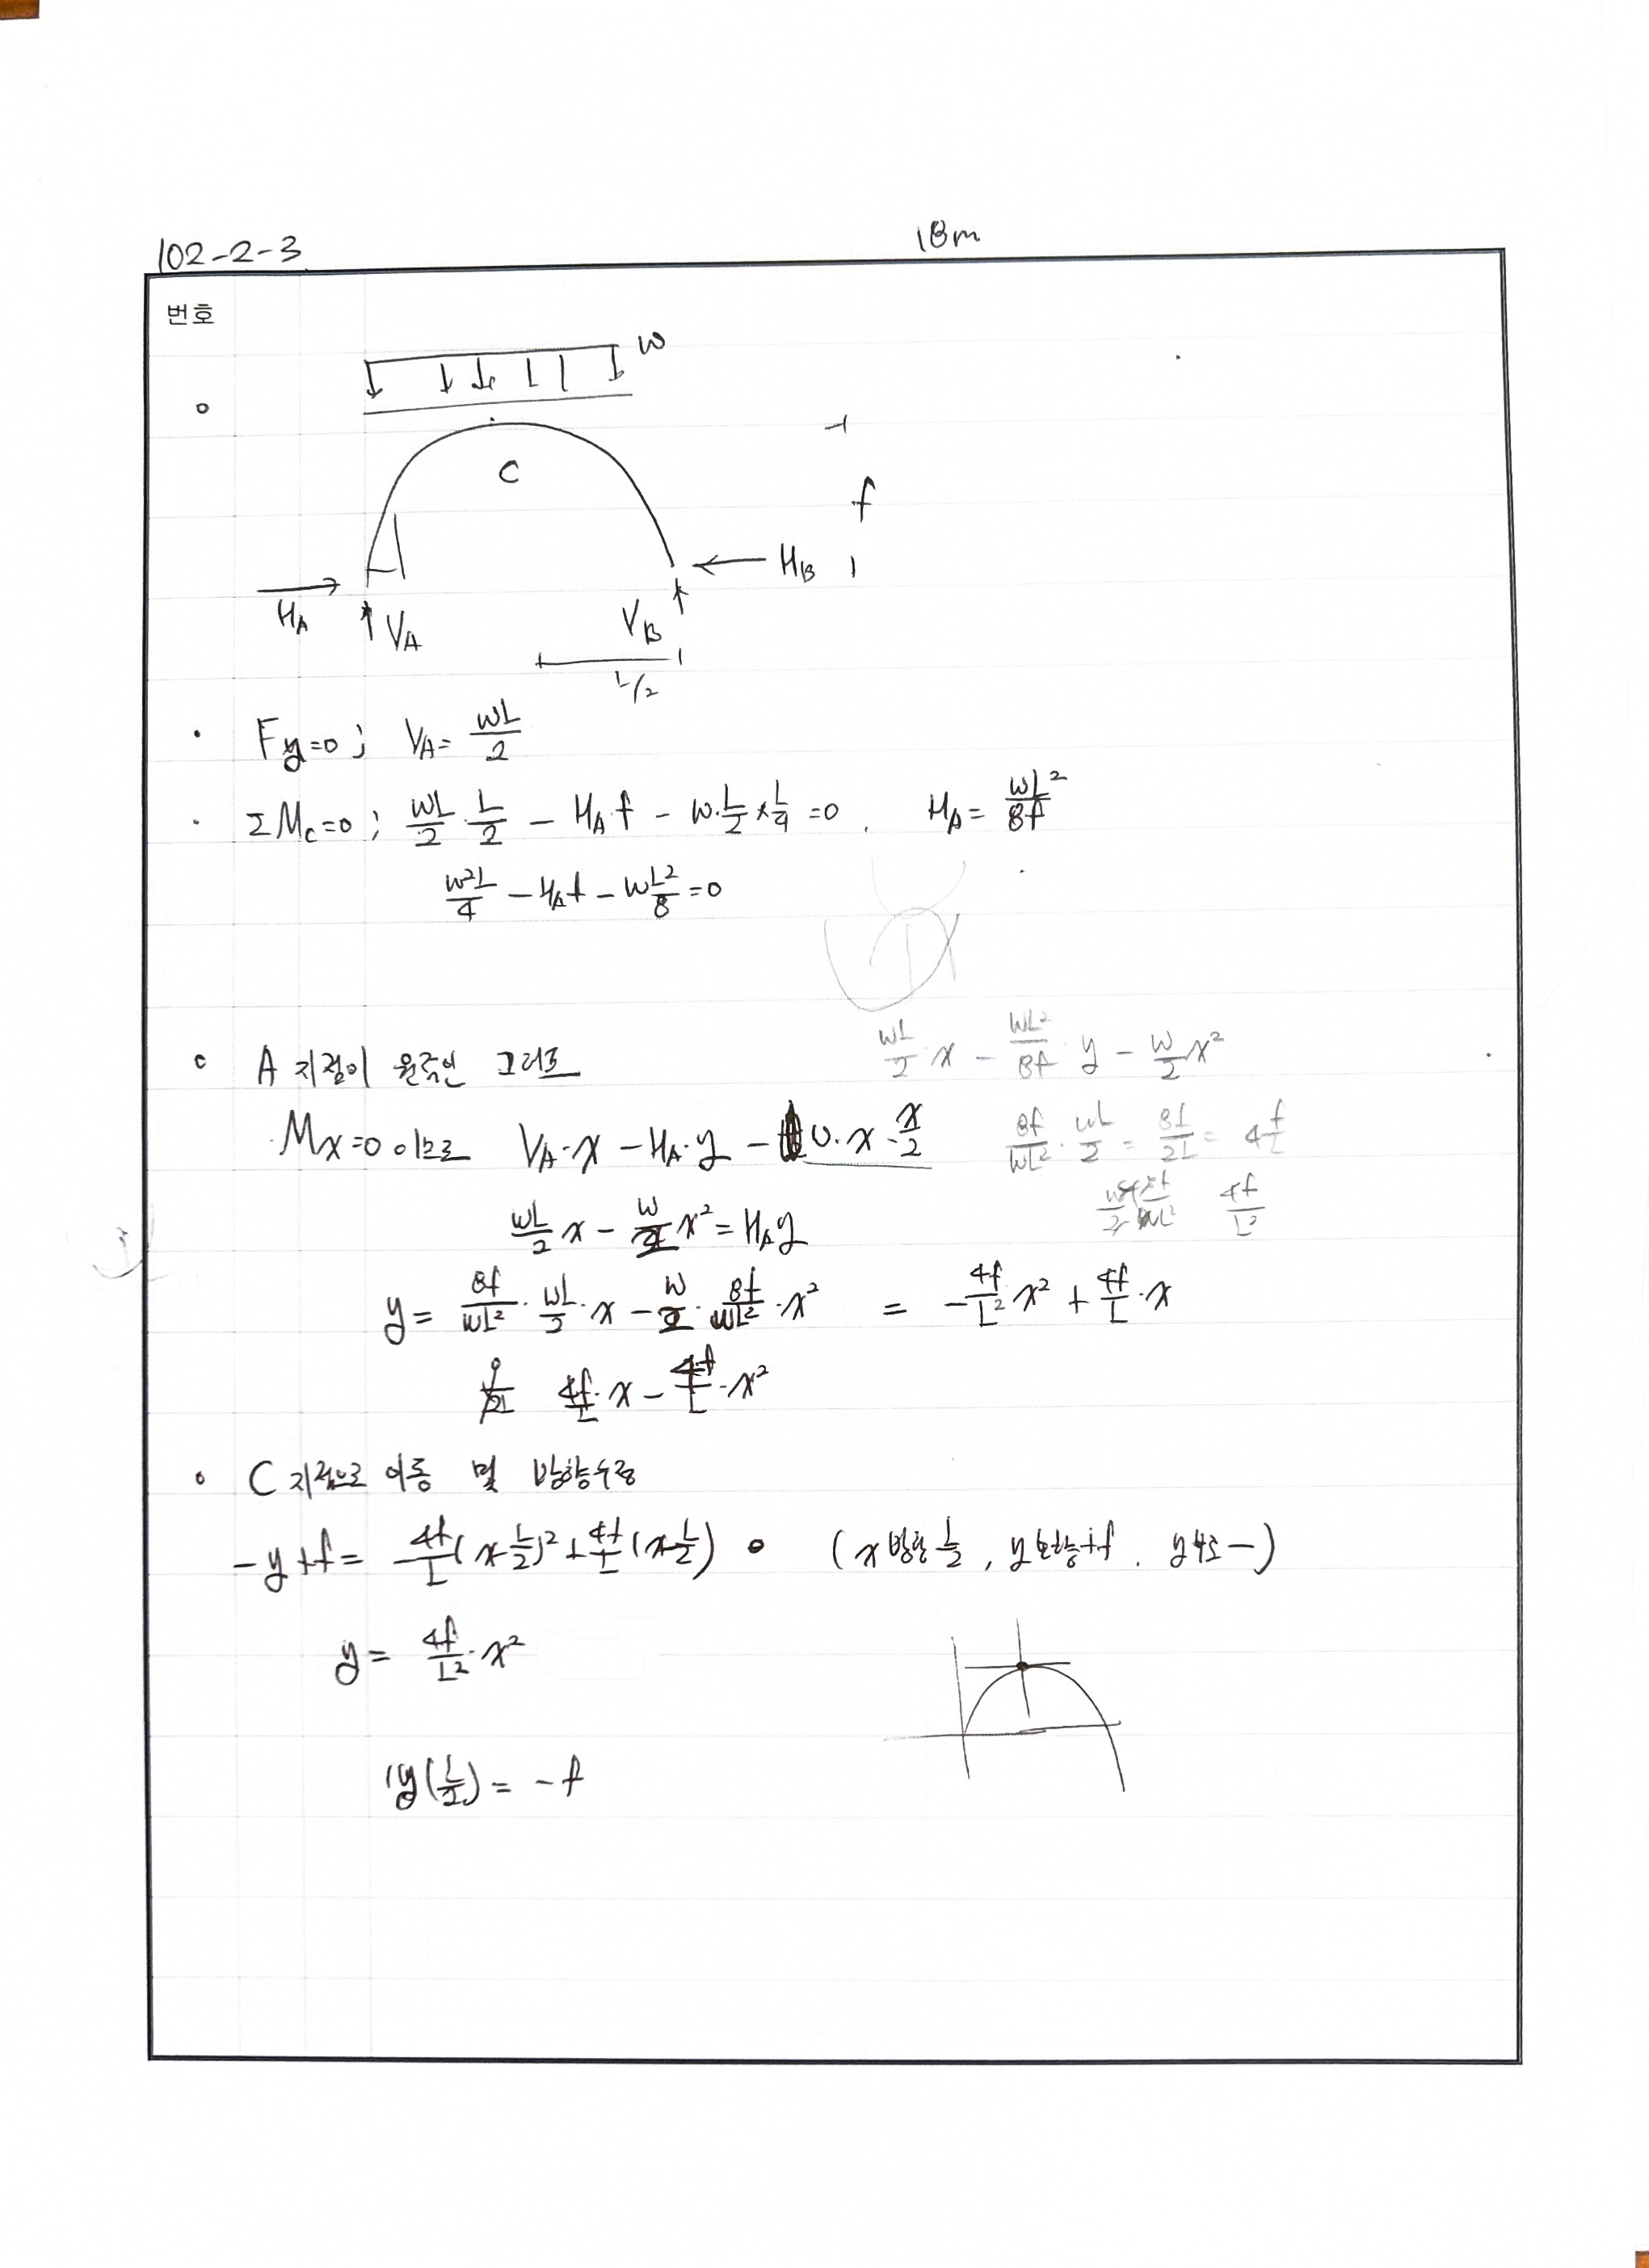 102-2-3
18m
번호
w
C
f
H_A
V_A
V_B
H_B
L/2
· Fy=0 ; V_A = wL/2
· ΣM_C=0 ; wL/2 · L/2 - H_A·f - w·L/2 × L/4 = 0. H_A = wL²/8f
w²L/4 - H_A f - wL²/8 = 0
wL/2 x - wL²/8f y - w/2 x²
A 지점이 원점인 그래프
Mx=0 이므로 V_A·x - H_A·y - w·x·x/2
8f/wL² · wL/2 = 8f/2L = 4f/L
4f/L²
wL/2 x - w/2 x² = H_A y
y = 8f/wL² · wL/2 · x - w/2 · 8f/wL² · x² = -4f/L² x² + 4f/L · x
4f/L · x - 4f/L · x²
C 지점으로 이동 및 방향수정
-y+f = -4f/L (x-L/2)² + 4f/L (x-L/2) (x방향 L/2, y방향 +f. y부호 -)
y = 4f/L² · x²
y(L/2) = -f